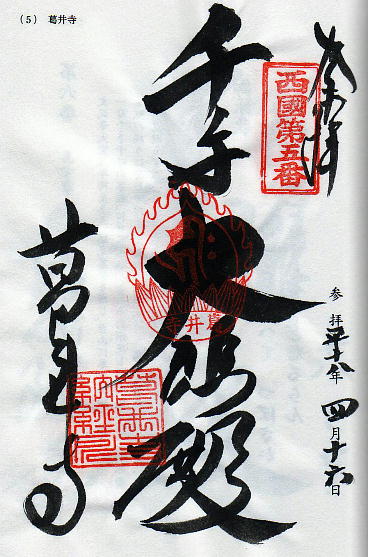 (5) 葛井寺
奉拝
西國第五番
千手大悲殿
葛井寺
葛井寺
参拝平十八年四月十六日